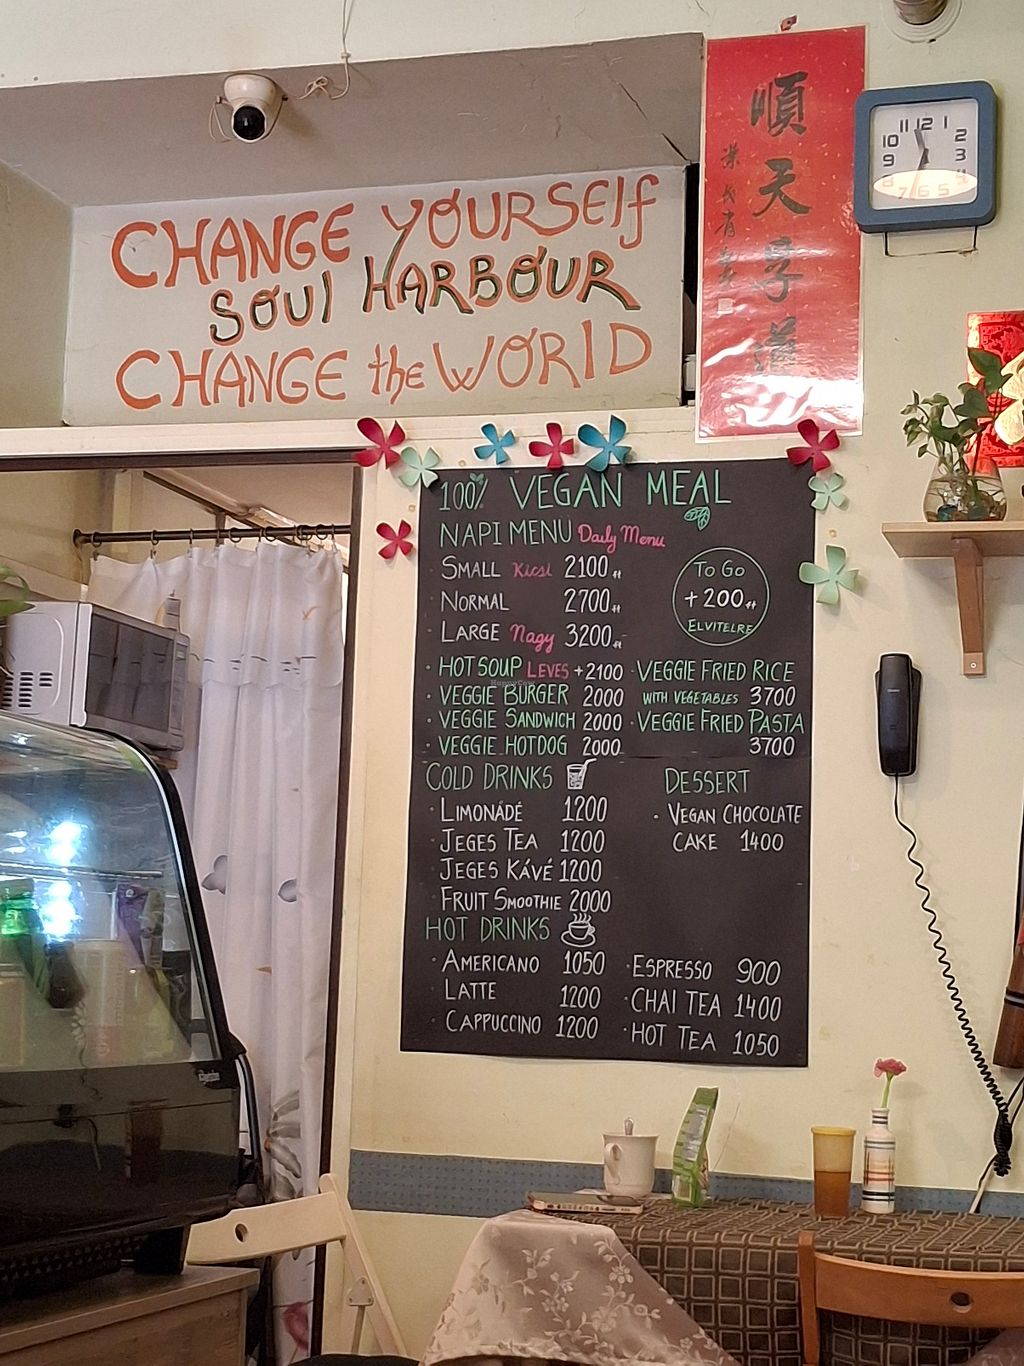 CHANGE YOURSELF
SOUL HARBOUR
CHANGE the WORLD
順天孝道
11 12 1
10 2
9 3
8 4
7 6 5
100% VEGAN MEAL
NAPI MENU Daily Menu
· SMALL Kicsi 2100 ft
· NORMAL 2700 ft
· LARGE Nagy 3200 ft
TO GO
+200 ft
ELVITELRE
· HOT SOUP LEVES +2100
· VEGGIE BURGER 2000
· VEGGIE SANDWICH 2000
· VEGGIE HOTDOG 2000
· VEGGIE FRIED RICE
WITH VEGETABLES 3700
· VEGGIE FRIED PASTA
3700
COLD DRINKS
· LIMONÁDÉ 1200
· JEGES TEA 1200
· JEGES KÁVÉ 1200
· FRUIT SMOOTHIE 2000
DESSERT
· VEGAN CHOCOLATE
CAKE 1400
HOT DRINKS
· AMERICANO 1050
· LATTE 1200
· CAPPUCCINO 1200
· ESPRESSO 900
· CHAI TEA 1400
· HOT TEA 1050
HappyCow